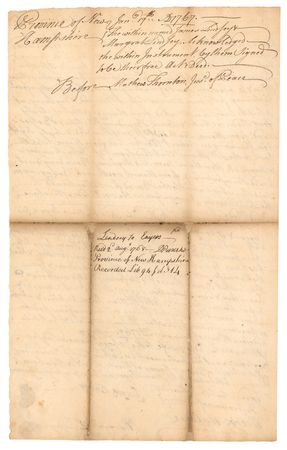 Province of New Jan 9th AD 1767.
Hampshire the within named James Lindsey &
Margaret acknowledged
the within instrument by them Signed
to be their free Act & Deed.
Before Mathew Thornton, Jus. of Peace
Lindsey to Eayers
Recd 2d Augt 1768
Province of New Hampshire
Recorded Lib 94 fol 314